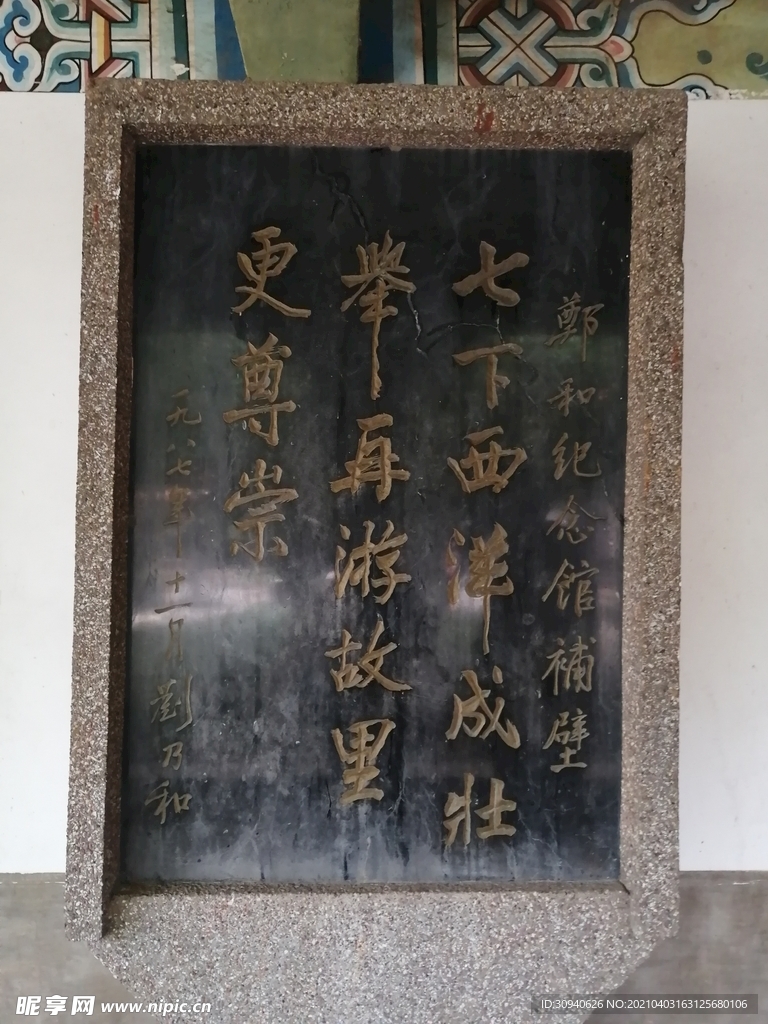 鄭和纪念館補壁
七下西洋成壯
舉再游故里
更尊崇
一九八七年十一月劉乃和
昵享网 www.nipic.cn
ID:30940626 NO:20210403163125680106